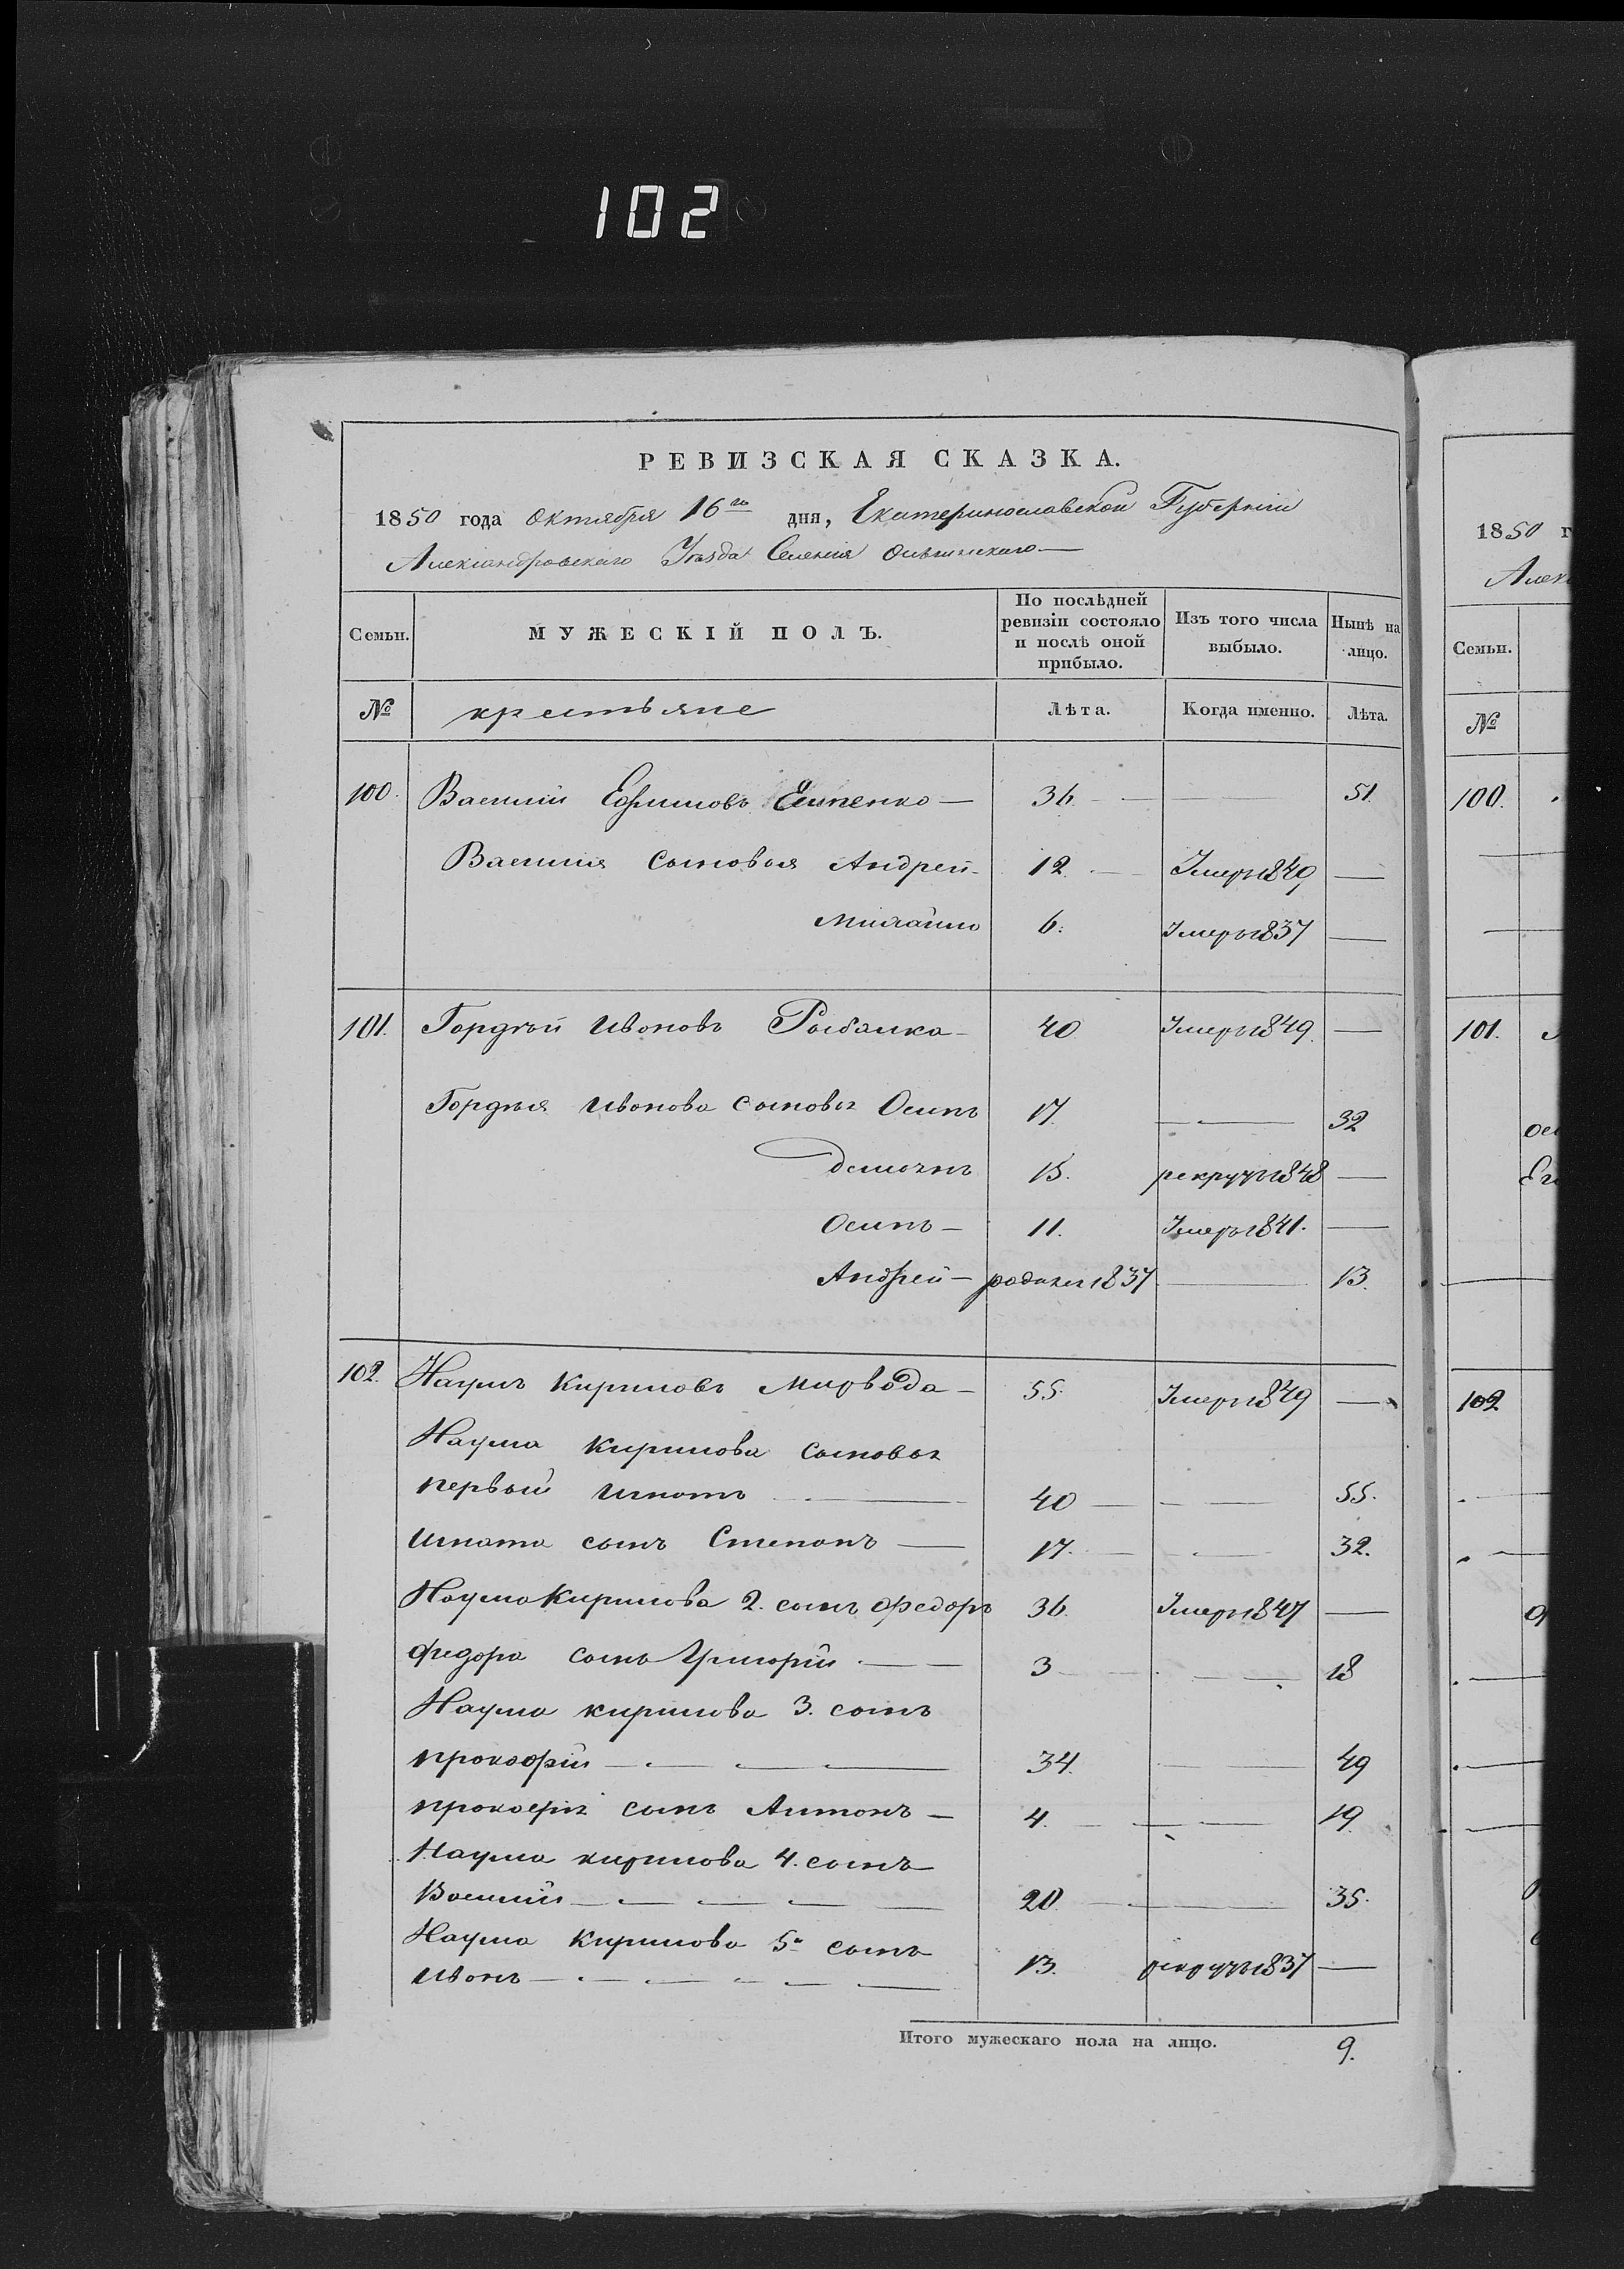 102
РЕВИЗСКАЯ СКАЗКА.
1850 года Октября 16го дня, Екатеринославской Губернии
Александровскаго Уезда Селения
Семьи. МУЖЕСКІЙ ПОЛЪ. По послѣдней ревизіи состояло и послѣ оной прибыло. Изъ того числа выбыло. Нынѣ на лицо.
№ крестьяне Лѣта. Когда именно. Лѣта.
100. Василий Ефимовъ — 36. — — 51.
Василия сыновья Андрей - 12. — Умеръ 1849 —
Михайло 6. Умеръ 1837 —
101. Гордѣй Ивановъ Рыбалка — 40 Умеръ 1849. —
Гордѣя Иванова сыновья Осипъ 17. — — 32
15. рекрутъ 1848 —
Осипъ — 11. Умеръ 1841. —
Андрей — родился 1837 — 13.
102. Наумъ Кириловъ Мирвода — 55. Умеръ 1849 —
Наума Кирилова сыновья
первый Игнатъ — 40 — — — 55.
Игната сынъ Степанъ — 17. — — — 32.
Наума Кирилова 2. сынъ Федоръ 36. Умеръ 1847 —
Федора сынъ Григорій — — 3 — — — 18
Наума Кирилова 3. сынъ
прокофій — — — — 34. — 49
прокофія сынъ Антонъ — 4. — — — 19.
Наума кирилова 4. сынъ
Василій — — — — — 20 — — 35.
Наума Кирилова 5й сынъ
Иванъ — — — — — 13. рекрутъ 1837 —
Итого мужескаго пола на лицо. 9.
1850 г
Алек
Семьи.
№
100.
101.
102